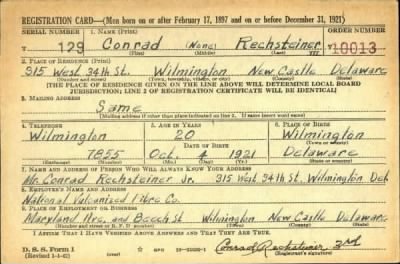 REGISTRATION CARD—(Men born on or after February 17, 1897 and on or before December 31, 1921)
SERIAL NUMBER 1. NAME (Print) ORDER NUMBER
129 Conrad (None) Rechsteiner III 10013
(First) (Middle) (Last)
2. PLACE OF RESIDENCE (Print)
315 West 34th St. Wilmington New Castle Delaware
(Number and street) (Town, township, village, or city) (County) (State)
[THE PLACE OF RESIDENCE GIVEN ON THE LINE ABOVE WILL DETERMINE LOCAL BOARD
JURISDICTION; LINE 2 OF REGISTRATION CERTIFICATE WILL BE IDENTICAL]
3. MAILING ADDRESS
Same
[Mailing address if other than place indicated on line 2. If same insert word same]
4. TELEPHONE 5. AGE IN YEARS 6. PLACE OF BIRTH
Wilmington 20 Wilmington
DATE OF BIRTH (Town or county)
7855 Oct. 4 1921 Delaware
(Exchange) (Number) (Mo.) (Day) (Yr.) (State or country)
7. NAME AND ADDRESS OF PERSON WHO WILL ALWAYS KNOW YOUR ADDRESS
Mr. Conrad Rechsteiner Jr. 315 West 34th St. Wilmington Del
8. EMPLOYER'S NAME AND ADDRESS
National Vulcanized Fibre Co.
9. PLACE OF EMPLOYMENT OR BUSINESS
Maryland Ave. and Beech St Wilmington New Castle Delaware
(Number and street or R. F. D. number) (Town) (County) (State)
I AFFIRM THAT I HAVE VERIFIED ABOVE ANSWERS AND THAT THEY ARE TRUE.
D. S. S. Form 1
(Revised 1-1-42) GPO
Conrad Rechsteiner 3rd
(Registrant's signature)